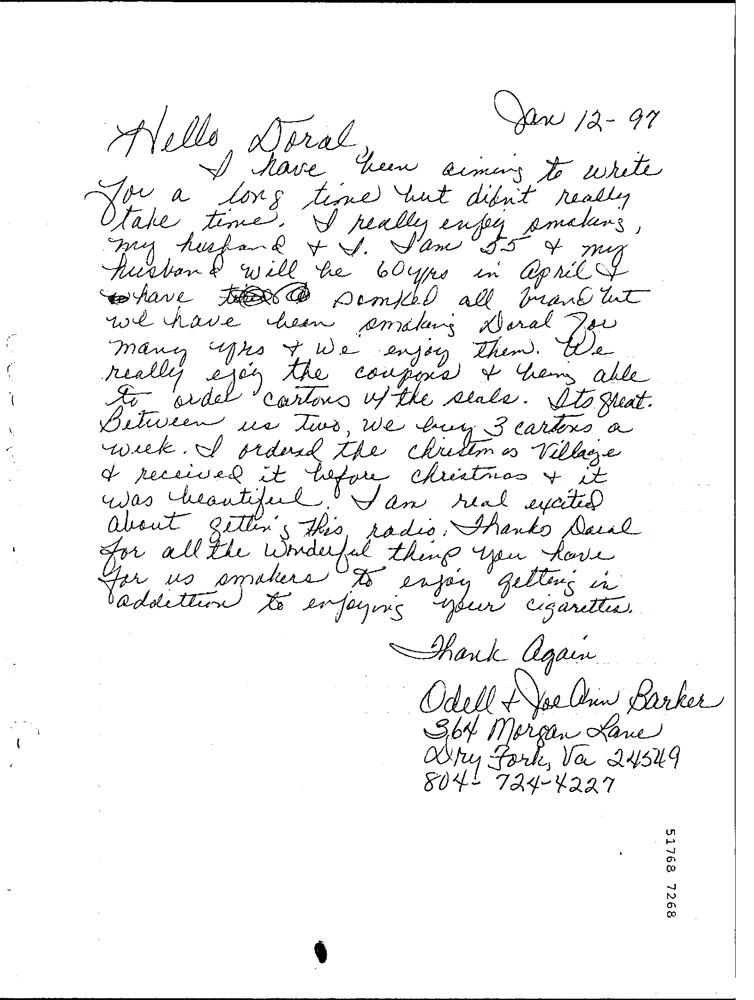 Jan 12-97
Hello Doral,
I have been aiming to write
You a long time but didn't really
take time. I really enjoy smoking,
my husband & I. I am 55 & my
husband will be 60yrs in April &
have somked all brand but
we have been smoking Doral For
many yrs & We enjoy them. We
really ejoy the coupons & being able
to order cartons w/ the seals. Its great.
Between us two, we buy 3 cartons a
week. I ordered the Christmas Village
& received it before Christmas & it
was beautiful. I am real excited
about getting this radio. Thanks Doral
for all the wonderful things you have
for us smokers to enjoy getting in
addittion to enjoying your cigarettes.
Thank Again
Odell & Joe Ann Barker
364 Morgan Lane
Dry Fork, Va 24549
804-724-4227
51768 7268